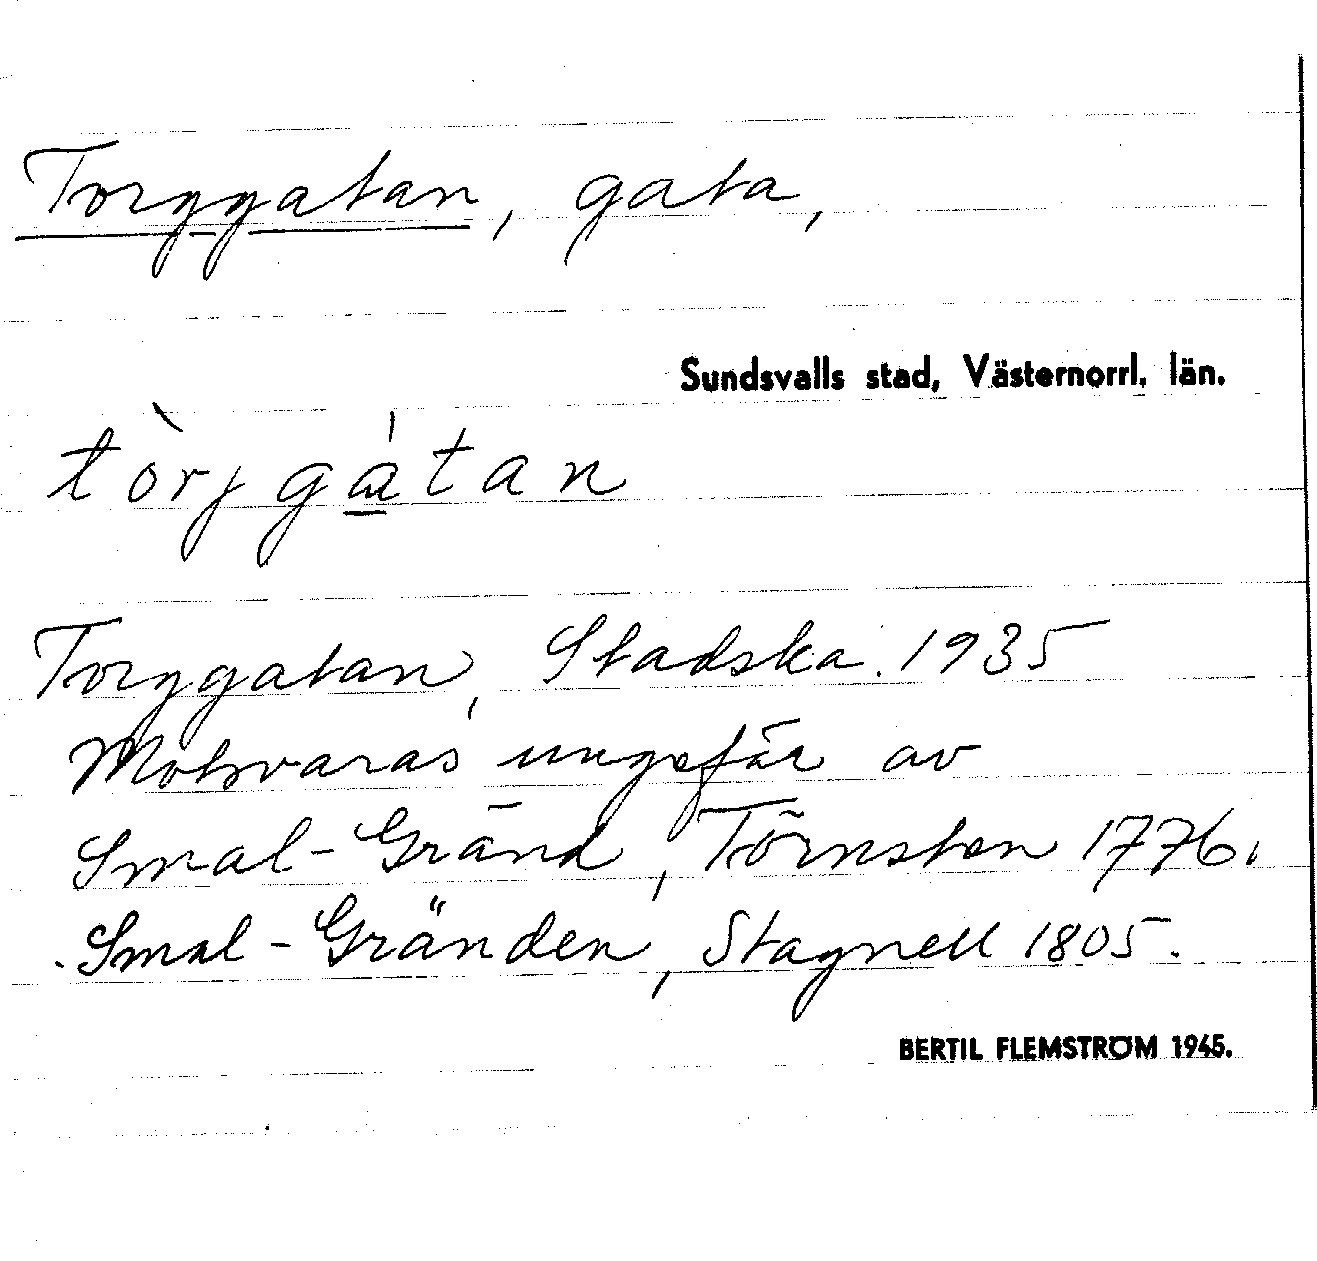 Torggatan, gata,
Sundsvalls stad, Västernorrl. län.
tòrjgátan
Torggatan, Stadska. 1935
Motsvaras ungefär av
Smal-Gränd, Törnsten 1776.
Smal-Gränden, Stagnell 1805.
BERTIL FLEMSTRÖM 1945.